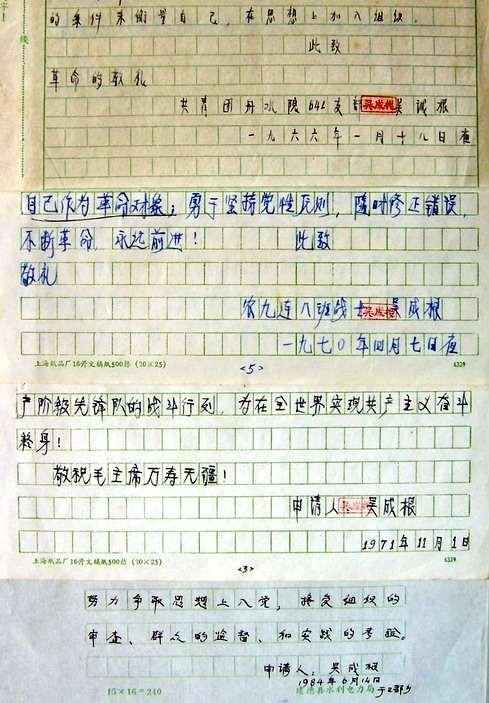 的条件来衡量自己，在思想上加入组织。
此致
革命的敬礼
共青团丹水隧641支部 吴成根 吴诚根
一九六六年一月十八日夜
自己作为革命对象；勇于坚持党性原则，随时修正错误，
不断革命，永远前进！ 此致
敬礼
农九连八班战士 吴成根 吴成根
一九七〇年四月七日夜
上海纸品厂16开文稿纸500格 (20×25) <5> 6339
产阶级先锋队的战斗行列，为在全世界实现共产主义奋斗
终身！
敬祝毛主席万寿无疆！
申请人 吴成根 吴成根
1971年11月1日
上海纸品厂16开文稿纸500格 (20×25) <3> 6339
努力争取思想上入党，接受组织的
审查、群众的监督、和实战的考验。
申请人：吴成根
1984年6月14日
15×16=240 建德县水利电力局